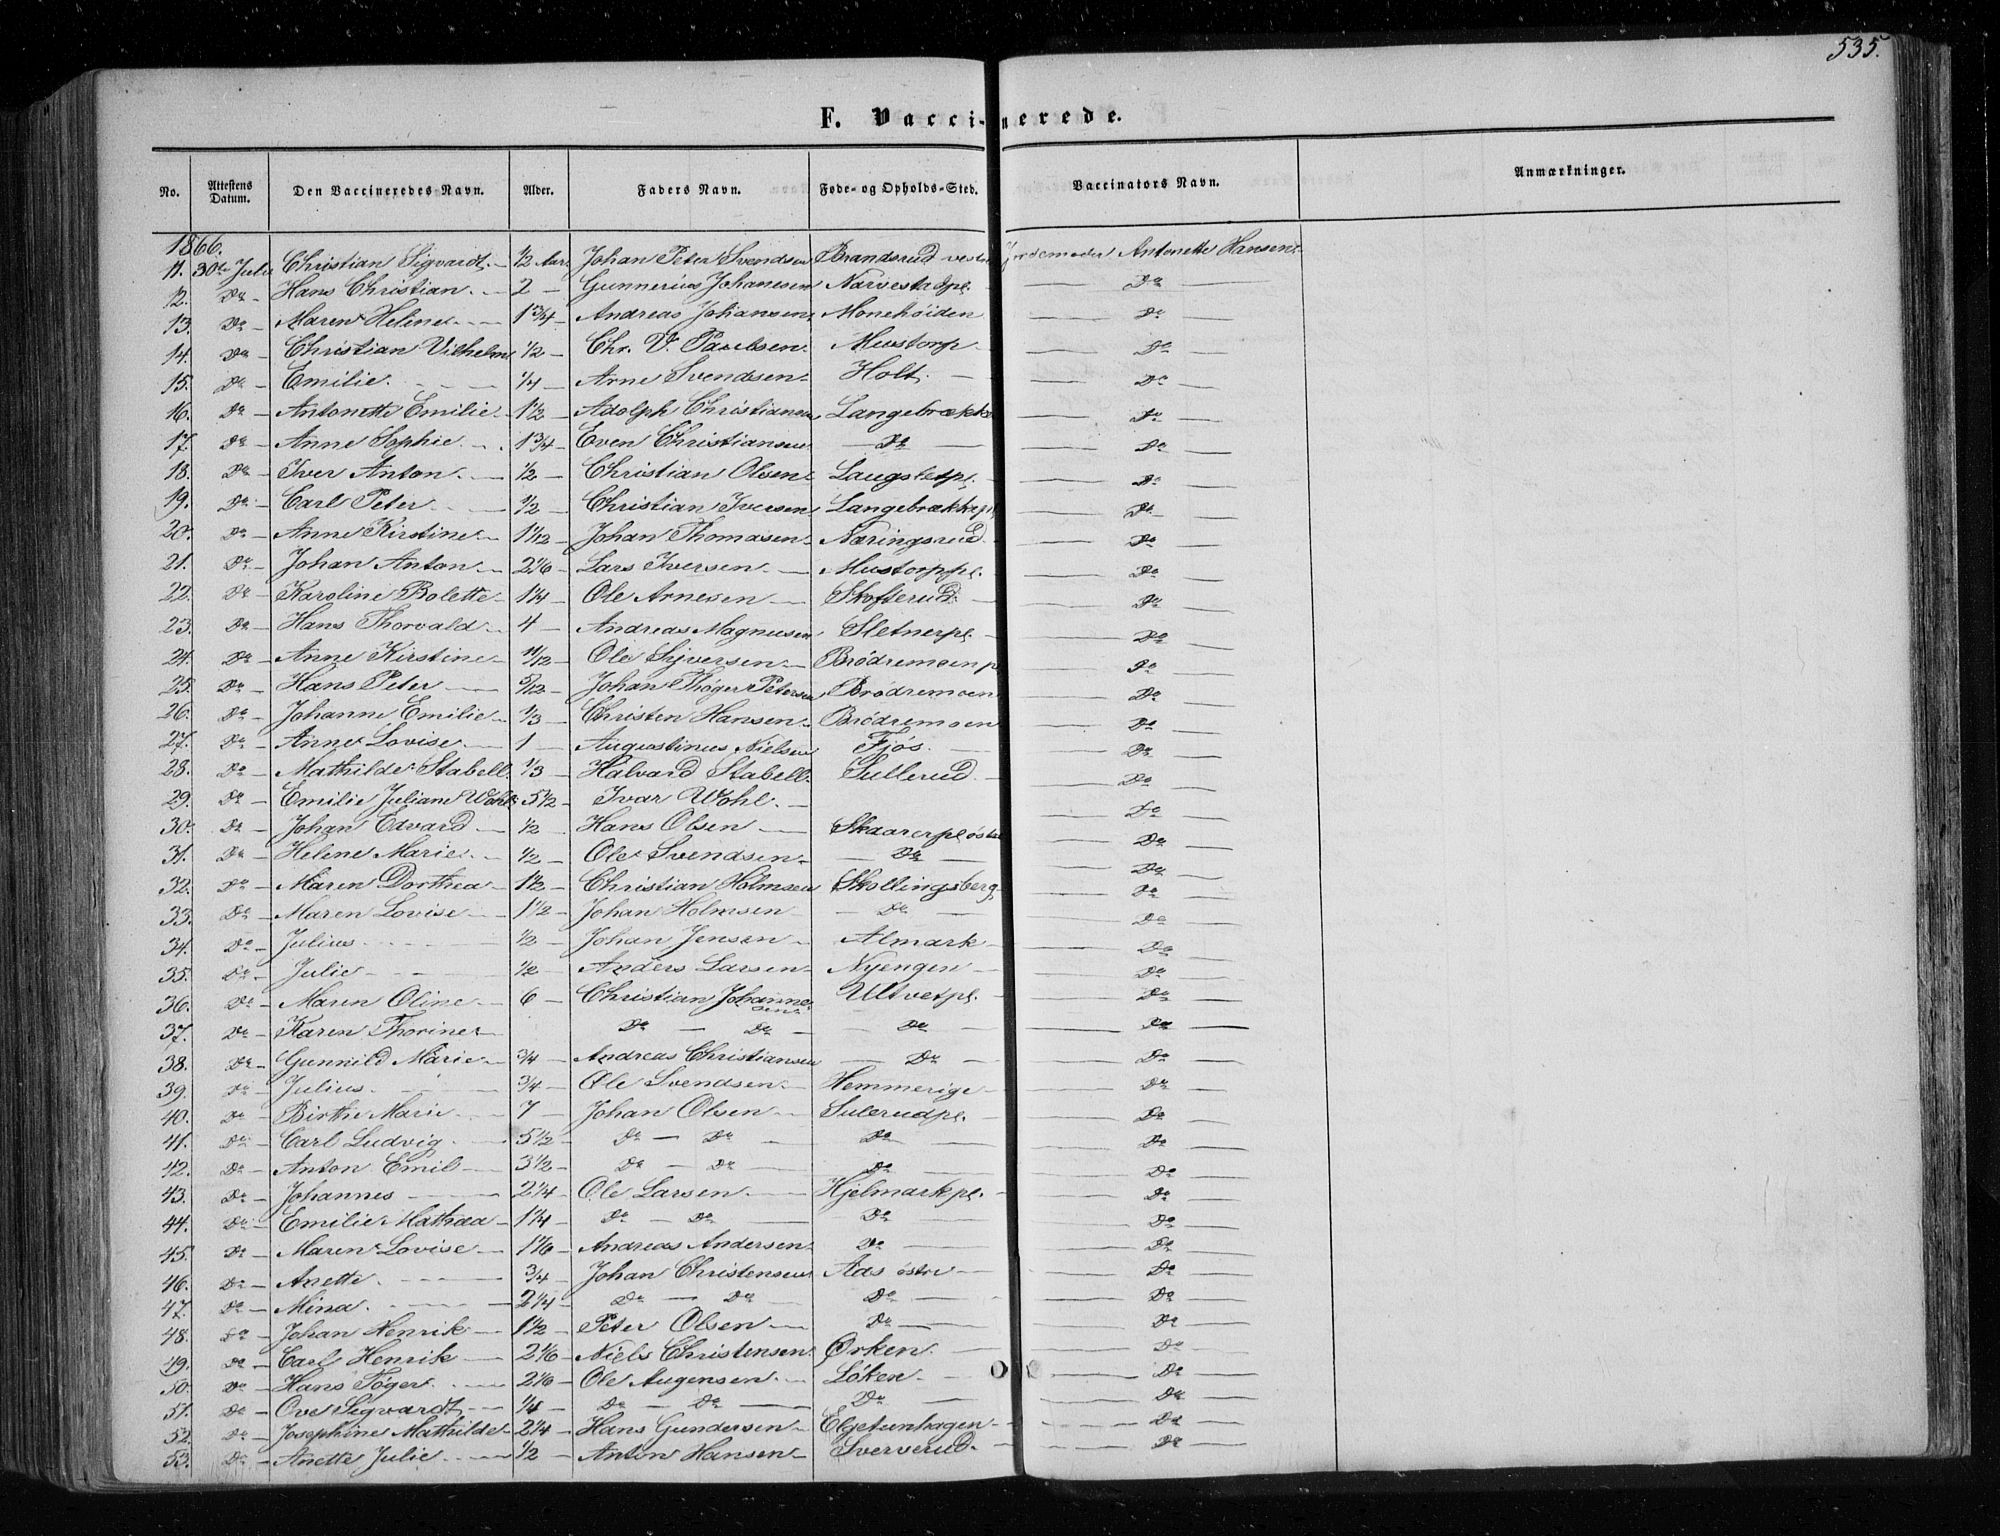 535.
F. Vaccinerede.
No. Attestens Datum. Den Vaccineredes Navn. Alder. Faders Navn. Føde- og Opholds-Sted. Vaccinators Navn. Anmærkninger.
1866.
11. 30te Juli Christian Sigvardt. ½ Aar. Johan Peter Svendsen Brandsrud vestre Jordemoder Antonette Hansen
12. Do Hans Christian 2 Gunnerius Johanesen Narvestadpl. Do
13. Do Maren Helene 1¾ Andreas Johansen Monehöiden Do
14. Do Christian Vilhelm ½ Chr. V. Paulsen. Mustorp Do
15. Do Emilie ¼ Arne Svendsen Holt. Do
16. Do Antonette Emilie 1½ Adolph Christiansen Langebrække Do
17. Do Anne Sophie 1¾ Even Christiansen Do Do
18. Do Iver Anton ½ Christian Olsen Laugsletpl. Do
19. Do Carl Peter ½ Christian Iversen Langebrækkepl Do
20. Do Anne Kirstine 1 1/12 Johan Thomasen Næringsrud Do
21. Do Johan Anton 2 1/6 Lars Iversen Mustorppl. Do
22. Do Karoline Bolette 1¼ Ole Arnesen Skofterud Do
23. Do Hans Thorvald 4 Andreas Magnusen Sletnerpl. Do
24. Do Anne Kirstine 11/12 Ole Syversen Brödremoen p Do
25. Do Hans Peter 5/12 Johan Thöger Petersen Brödremoen Do
26. Do Johanne Emilie 1/3 Christen Hansen Brödremoen Do
27. Do Anne Lovise 1 Augustinus Nielsen Fjös. Do
28. Do Mathilde Stabell. 1/3 Halvard Stabell. Sullerud Do
29. Do Emilie Juliane Wohl 5½ Ivar Wohl. Do
30. Do Johan Edvard ½ Hans Olsen Skaarerpl östre Do
31. Do Helene Marie ½ Ole Svendsen Do Do
32. Do Maren Dorthea 1½ Christian Holmsen Skollingsberg Do
33. Do Maren Lovise 1½ Johan Holmsen Do Do
34. Do Julius ½ Johan Jensen Almark Do
35. Do Julie ½ Anders Larsen Nyengen Do
36. Do Maren Oline 6 Christian Johannesen Ultvetpl. Do
37. Do Karen Thorine Do Do Do Do
38. Do Gunnild Marie ¾ Andreas Christiansen Do Do
39. Do Julius. ¾ Ole Svendsen Hemmerige Do
40. Do Birthe Marie 7 Johan Olsen Sulerudpl. Do
41. Do Carl Ludvig 5½ Do Do Do Do
42. Do Anton Emil 3½ Do Do Do Do
43. Do Johannes 2¼ Ole Larsen Hjelmarkpl. Do
44. Do Emilie Mathea 1¼ Do Do Do Do
45. Do Maren Lovise 1 1/6 Andreas Andersen Do Do
46. Do Anette ¾ Johan Christensen Aas östre Do
47. Do Mina 2¼ Do Do Do Do
48. Do Johan Henrik 1½ Peter Olsen Do Do
49. Do Carl Henrik 2 1/6 Niels Christensen Ørken. Do
50. Do Hans Töger 2 1/6 Ole Augensen Löken Do
51. Do Ove Sigvardt ¼ Do Do Do Do
52. Do Josephine Mathilde 2¼ Hans Gundersen Elgetunhagen Do
53. Do Anette Julie ½ Anton Hansen Sververud Do